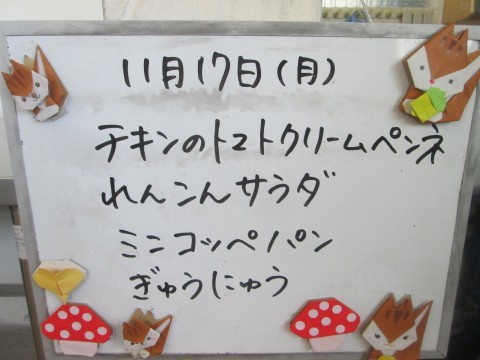 11月17日(月)
チキンのトマトクリームペンネ
れんこんサラダ
ミニコッペパン
ぎゅうにゅう